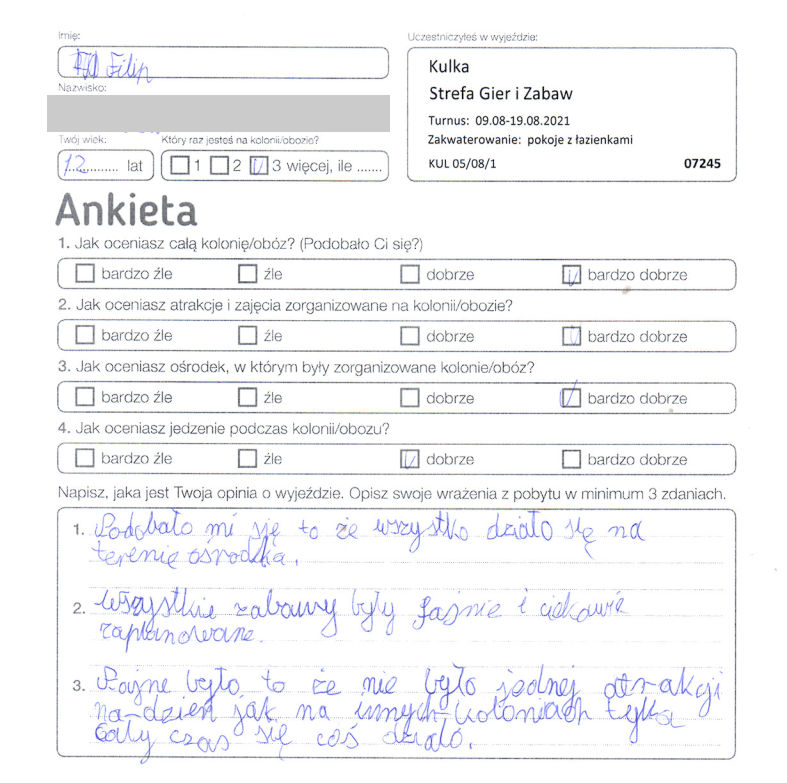 Imię:
Filip
Uczestniczyłeś w wyjeździe:
Kulka
Strefa Gier i Zabaw
Turnus: 09.08-19.08.2021
Zakwaterowanie: pokoje z łazienkami
KUL 05/08/1 07245
Nazwisko:
Twój wiek: Który raz jesteś na kolonii/obozie?
12 lat 1 2 3 więcej, ile .......
Ankieta
1. Jak oceniasz całą kolonię/obóz? (Podobało Ci się?)
bardzo źle źle dobrze bardzo dobrze
2. Jak oceniasz atrakcje i zajęcia zorganizowane na kolonii/obozie?
bardzo źle źle dobrze bardzo dobrze
3. Jak oceniasz ośrodek, w którym były zorganizowane kolonie/obóz?
bardzo źle źle dobrze bardzo dobrze
4. Jak oceniasz jedzenie podczas kolonii/obozu?
bardzo źle źle dobrze bardzo dobrze
Napisz, jaka jest Twoja opinia o wyjeździe. Opisz swoje wrażenia z pobytu w minimum 3 zdaniach.
1. Podobało mi się to że wszystko działo się na
terenie ośrodka.
2. Wszystkie zabawy były fajnie i ciekawie
zaplanowane.
3. Fajne było to że nie było jednej atrakcji
na dzień jak na innych koloniach tylko
cały czas się coś działo.